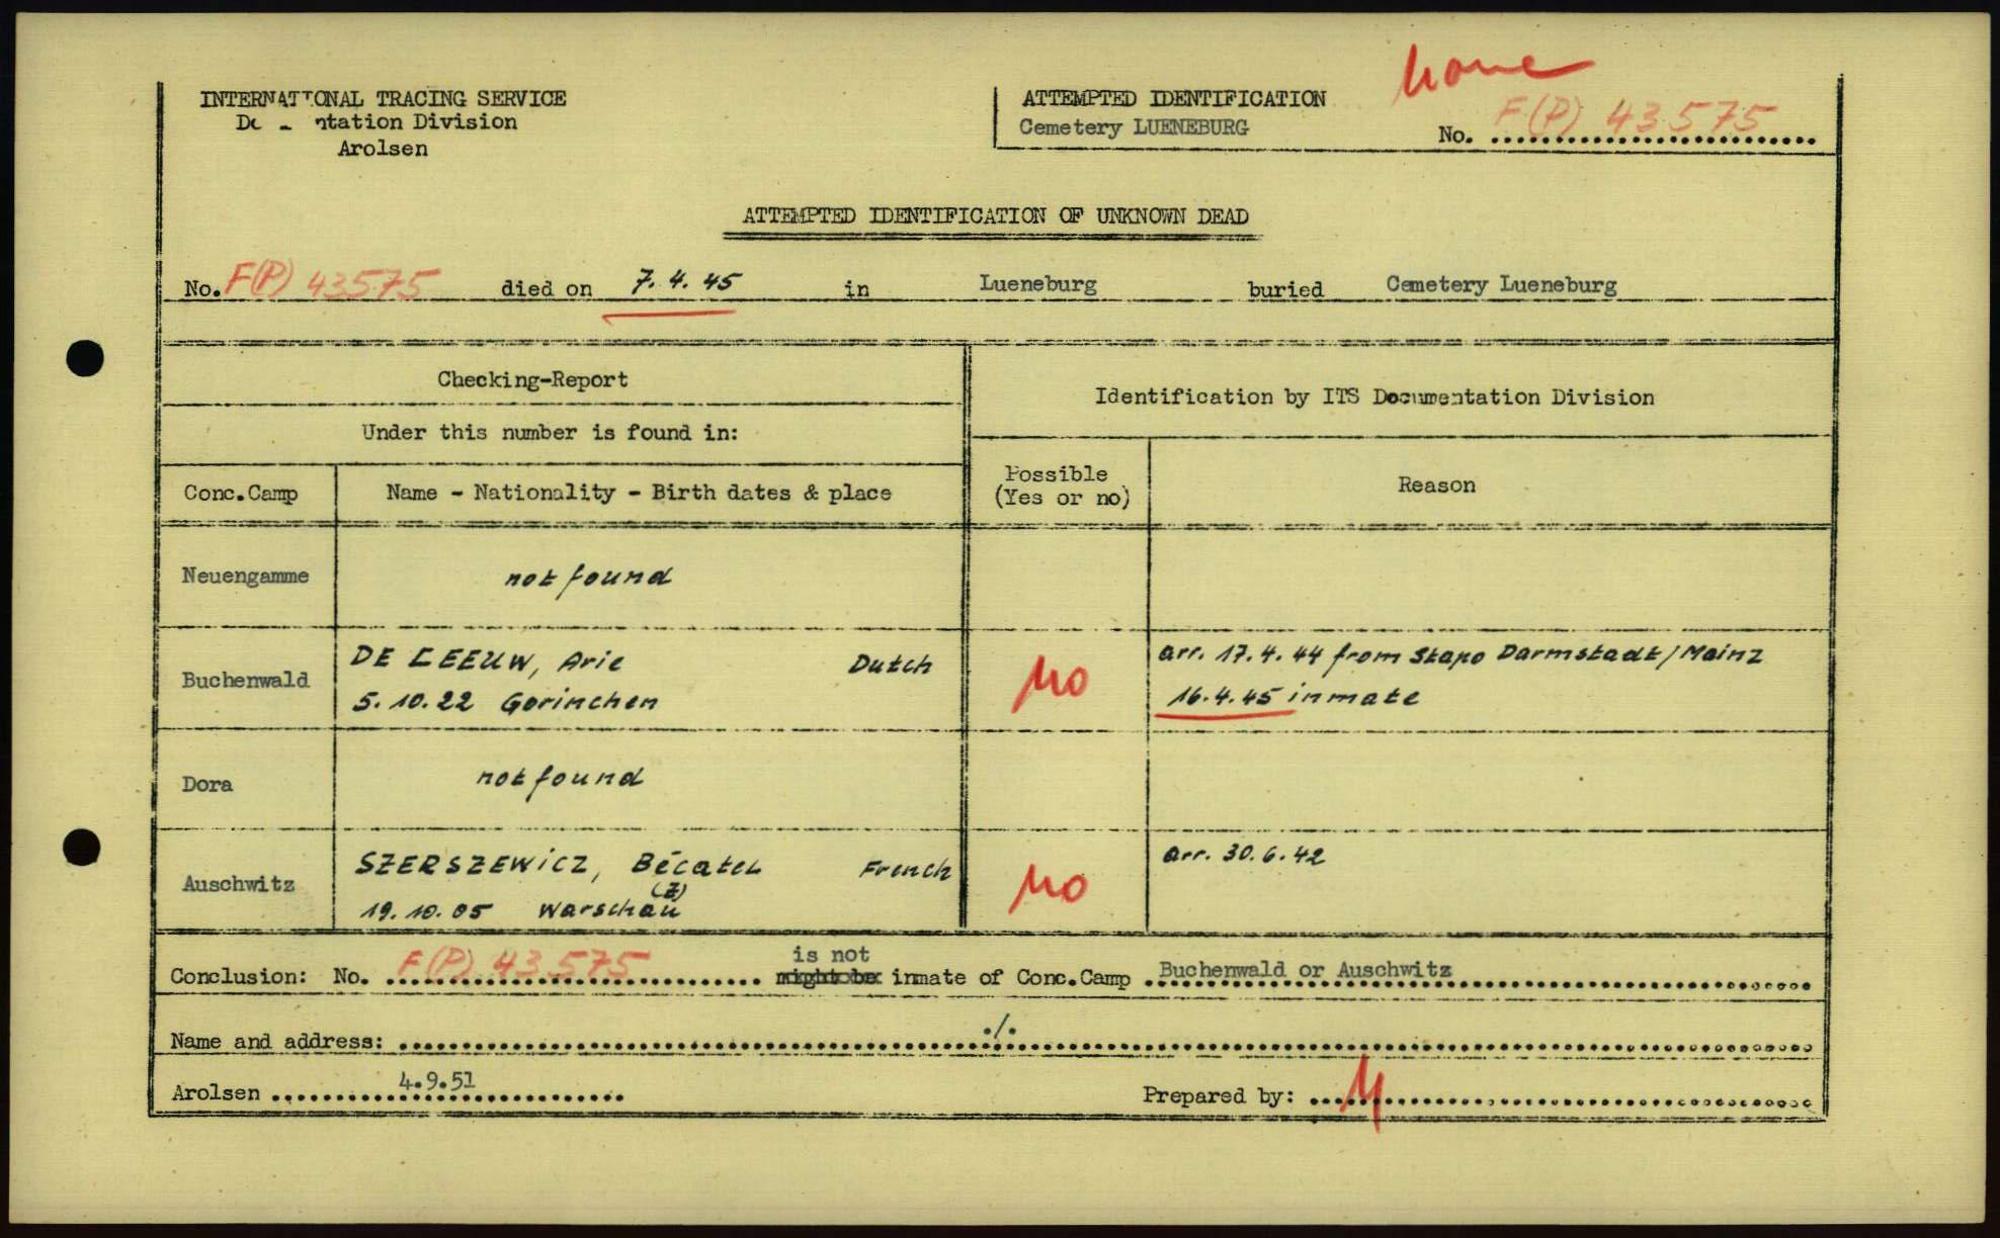 none
INTERNATIONAL TRACING SERVICE
Documentation Division
Arolsen
ATTEMPTED IDENTIFICATION
Cemetery LUENEBURG
No. F(P) 43575
ATTEMPTED IDENTIFICATION OF UNKNOWN DEAD
No. F(P) 43575 died on 7.4.45 in Lueneburg buried Cemetery Lueneburg
Checking-Report
Identification by ITS Documentation Division
Under this number is found in:
Conc.Camp
Name - Nationality - Birth dates & place
Possible
(Yes or no)
Reason
Neuengamme
not found
Buchenwald
DE LEEUW, Arie Dutch
5.10.22 Gorinchen
no
arr. 17.4.44 from Stapo Darmstadt/Mainz
16.4.45 inmate
Dora
not found
Auschwitz
SZERSZEWICZ, Bécatel French
(Z)
19.10.05 Warschau
no
arr. 30.6.42
is not
Conclusion: No. F(P) 43575 might be inmate of Conc.Camp Buchenwald or Auschwitz
Name and address: ./.
Arolsen 4.9.51
Prepared by: